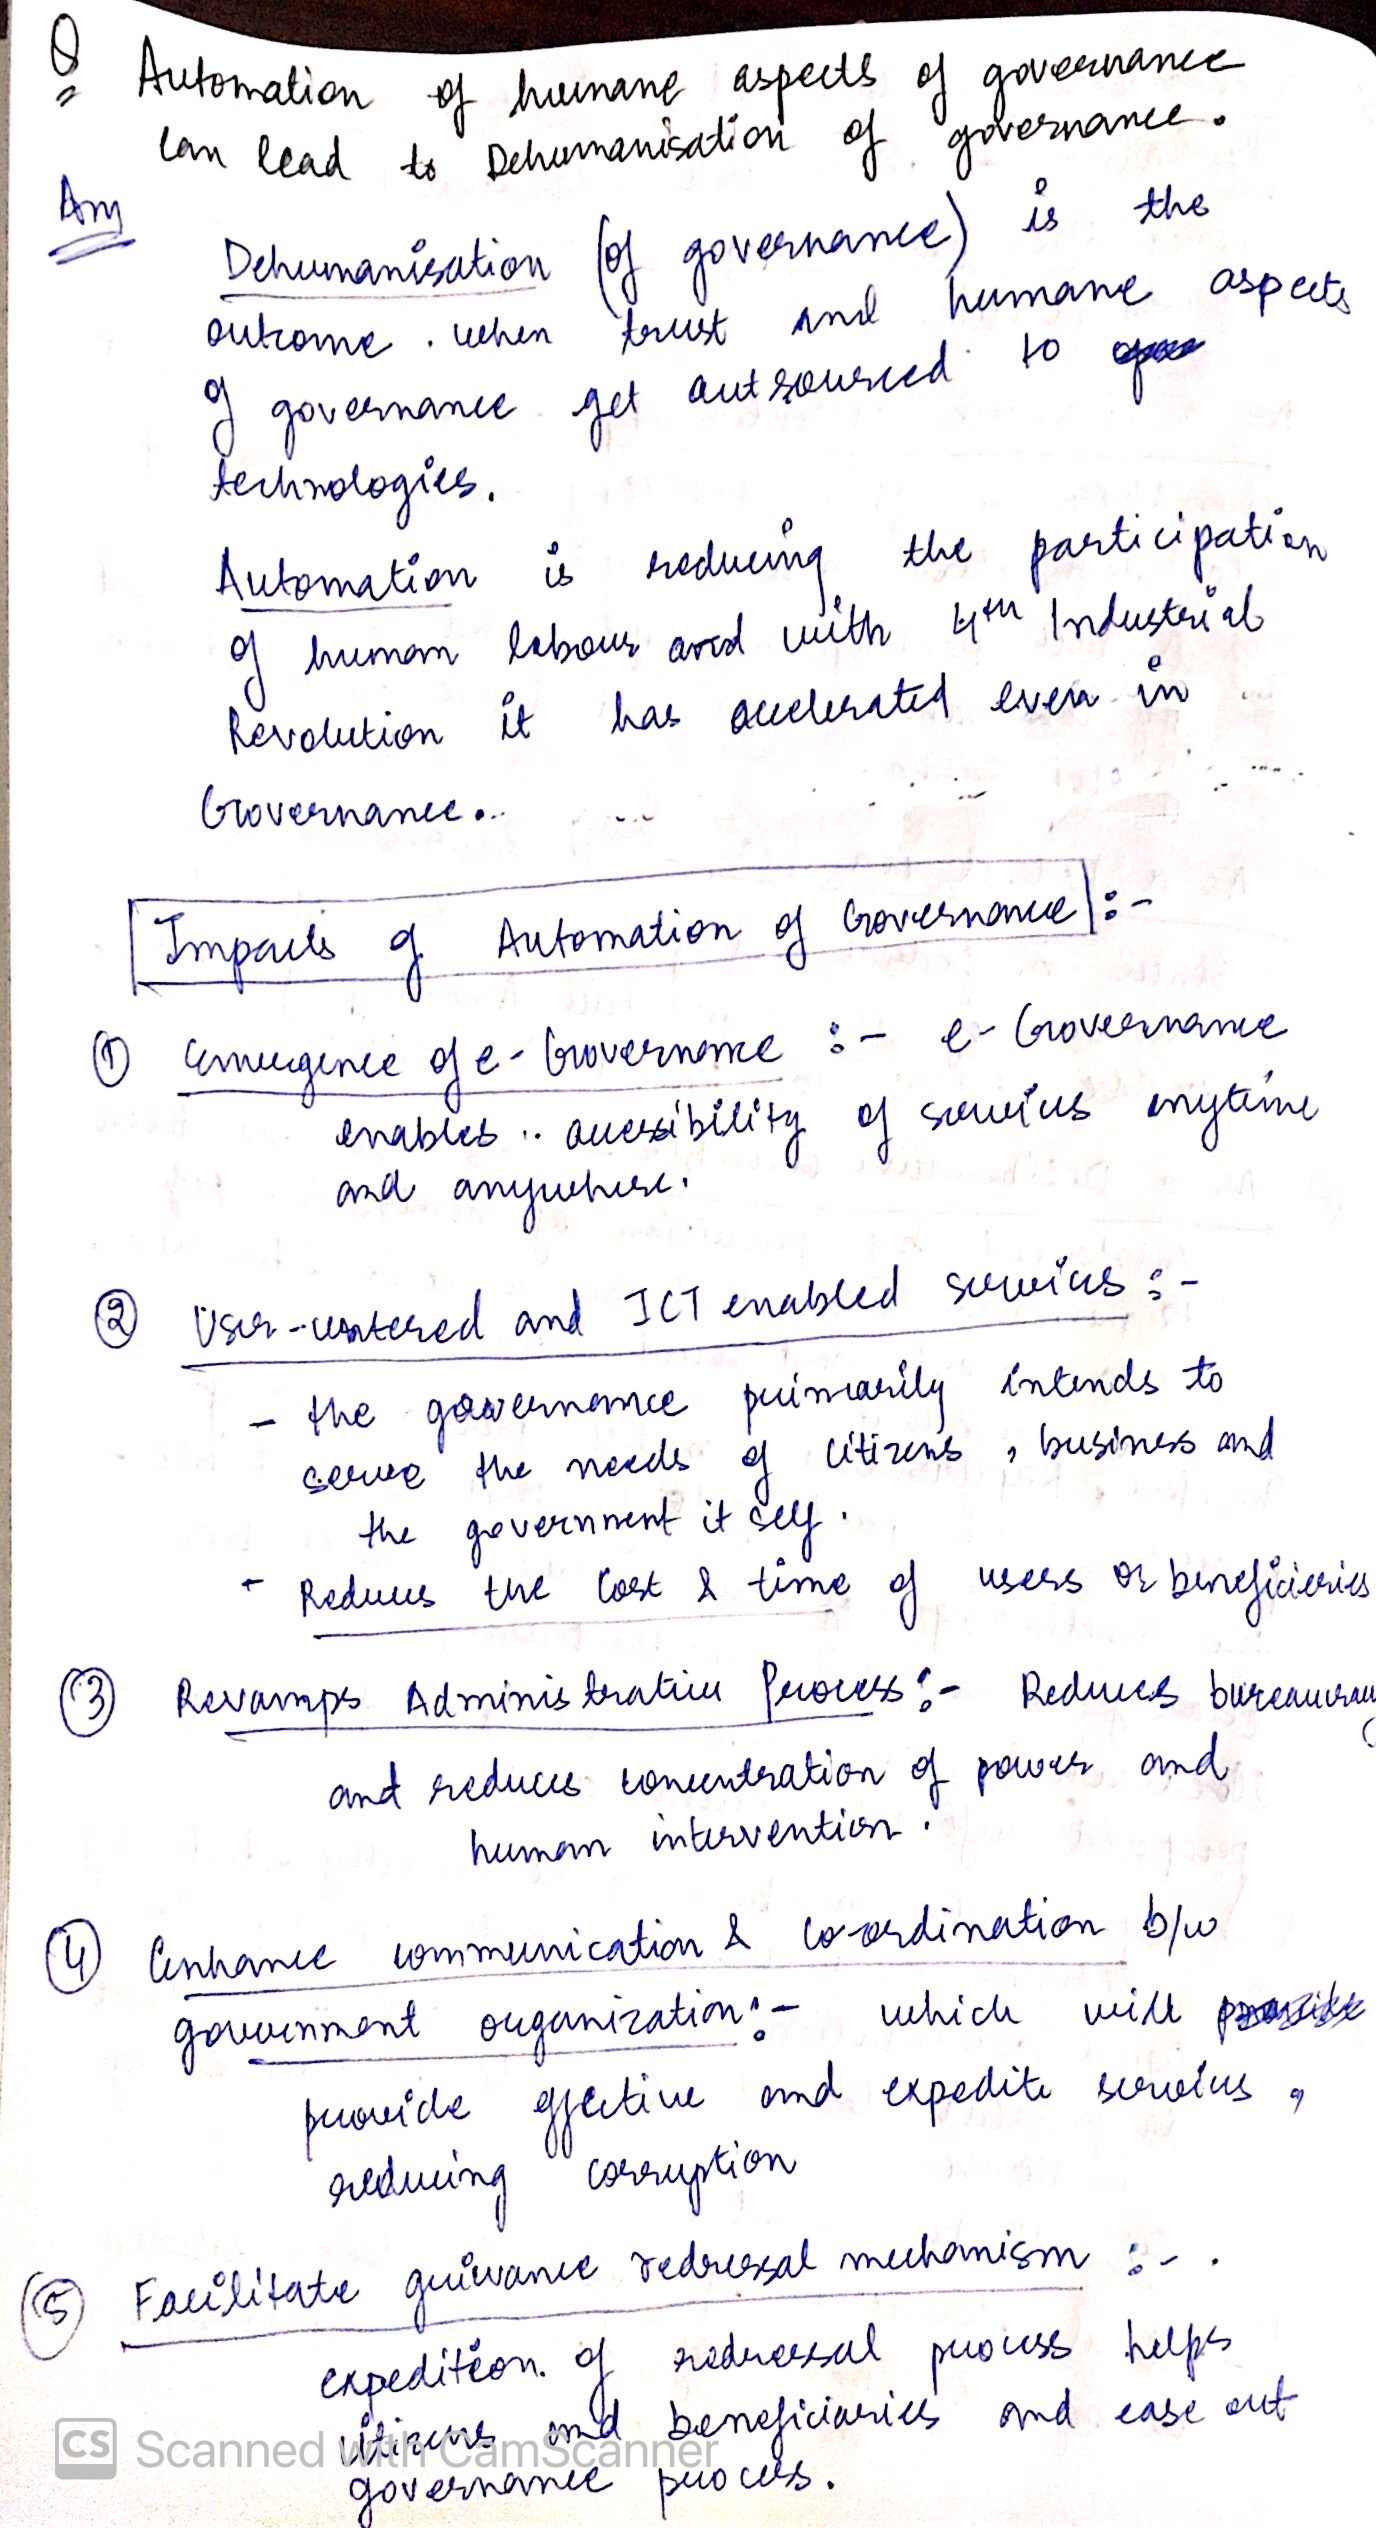 Q Automation of humane aspects of governance
can lead to Dehumanisation of governance.
Ans
Dehumanisation (of governance) is the
outcome. when trust and humane aspects
of governance get outsourced to
technologies.
Automation is reducing the participation
of human labour and with 4th Industrial
Revolution it has accelerated even in
Governance..
Impacts of Automation of Governance :-
① Emergence of e-Governance :- e-Governance
enables .. accessibility of services anytime
and anywhere.
② User-centered and ICT enabled services :-
- the governance primarily intends to
serve the needs of citizens, business and
the government it self.
- Reduces the Cost & time of users or beneficieries
③ Revamps Administrative Process :- Reduces bureaucracy
and reduces concentration of power and
human intervention.
④ Enhance communication & co-ordination b/w
government organization :- which will
provide effective and expedite services,
reducing corruption
⑤ Facilitate grievance redressal mechanism :- .
expedition. of redressal process helps
citizens and beneficiaries and ease out
governance process.
CS Scanned with CamScanner